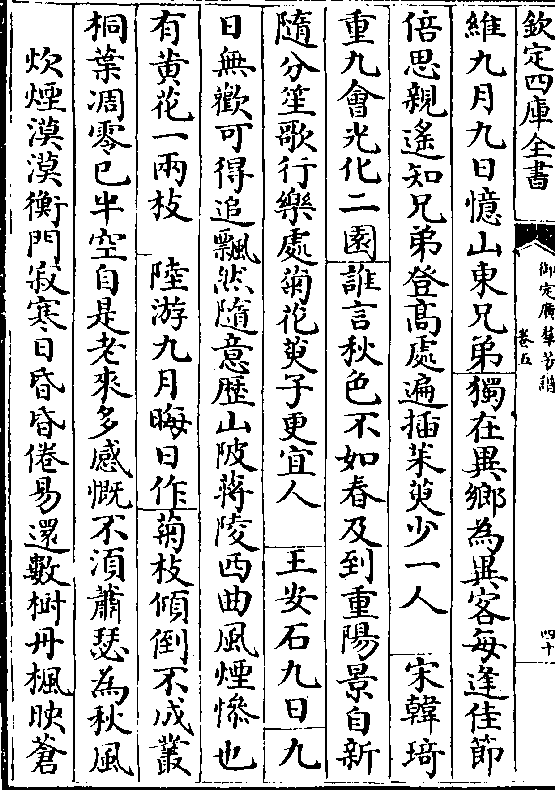 欽定四庫全書
御定廣羣芳譜
卷五
四十
維九月九日憶山東兄弟獨在異鄉為異客每逢佳節
倍思親遙知兄弟登髙處遍插茱萸少一人 宋韓琦
重九㑹光化二園誰言秋色不如春及到重陽景自新
隨分笙歌行樂處菊花萸子更宜人 王安石九日九
日無歡可得追飄然隨意歴山陂蔣陵西曲風煙慘也
有黄花一兩枝 陸游九月晦日作菊枝傾倒不成叢
桐葉凋零已半空自是老來多感慨不湏蕭瑟為秋風
炊煙漠漠衡門寂寒日昏昏倦易還數樹丹楓映蒼